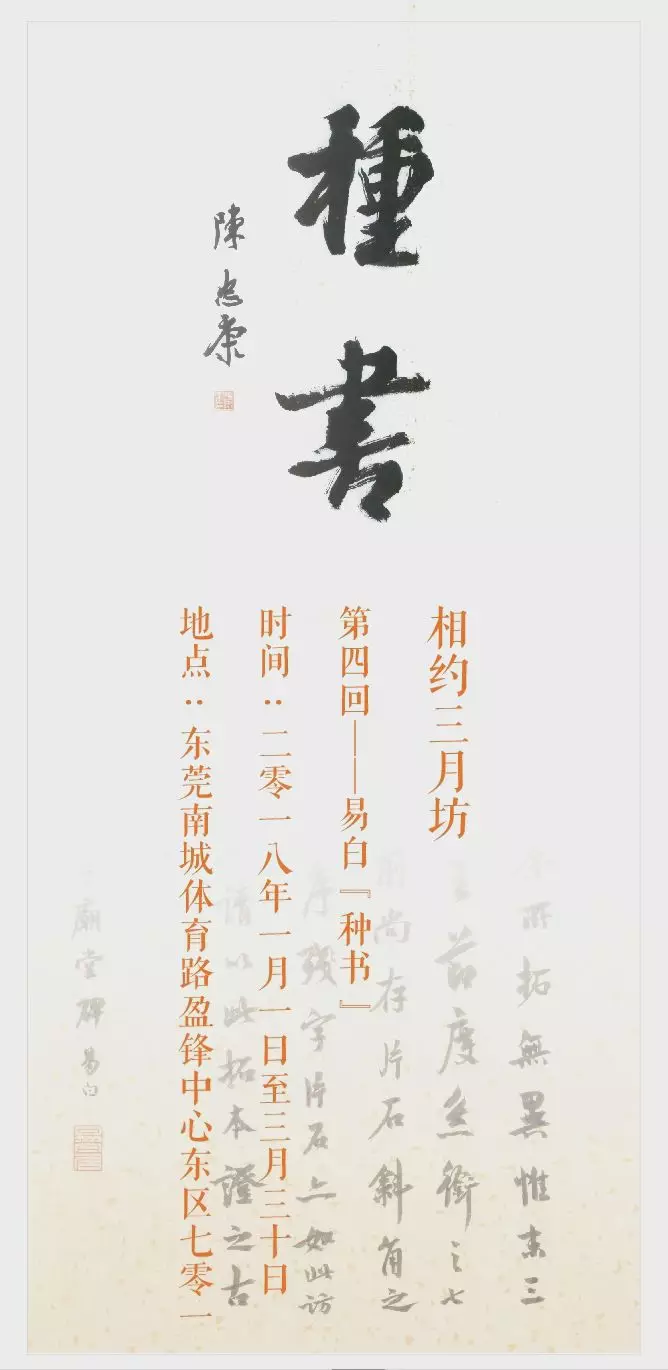 種書
陳忠康
相约三月坊
第四回——易白『种书』
时间：二零一八年一月一日至三月三十日
地点：东莞南城体育路盈锋中心东区七零一
所拓無異惟末三
節度使銜之七
尚存片石斜角之
序殘字片石上如此访
以此拓本證之古
廟堂碑易白